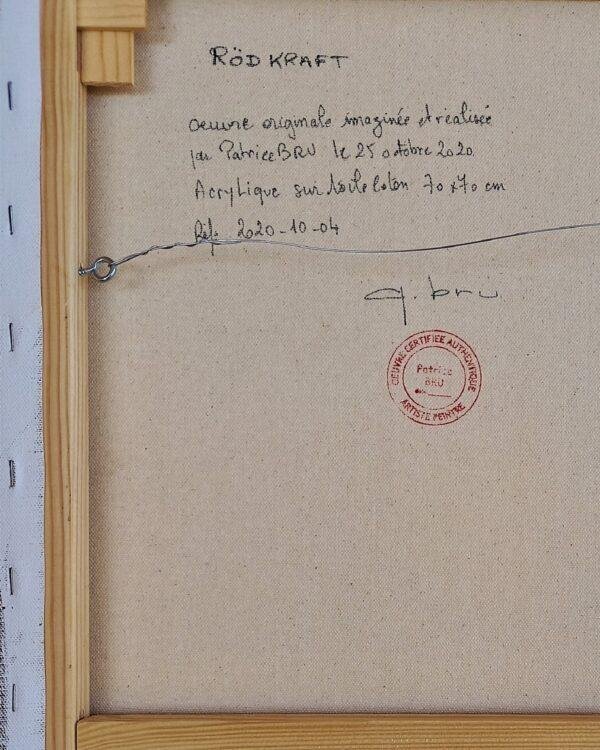 RÖD KRAFT
oeuvre originale imaginée et réalisée
par Patrice BRU le 25 octobre 2020
Acrylique sur toile coton 70 x 70 cm
Réf. 2020-10-04
p. bru
OEUVRE CERTIFIEE AUTHENTIQUE
Patrice
BRU
ARTISTE PEINTRE